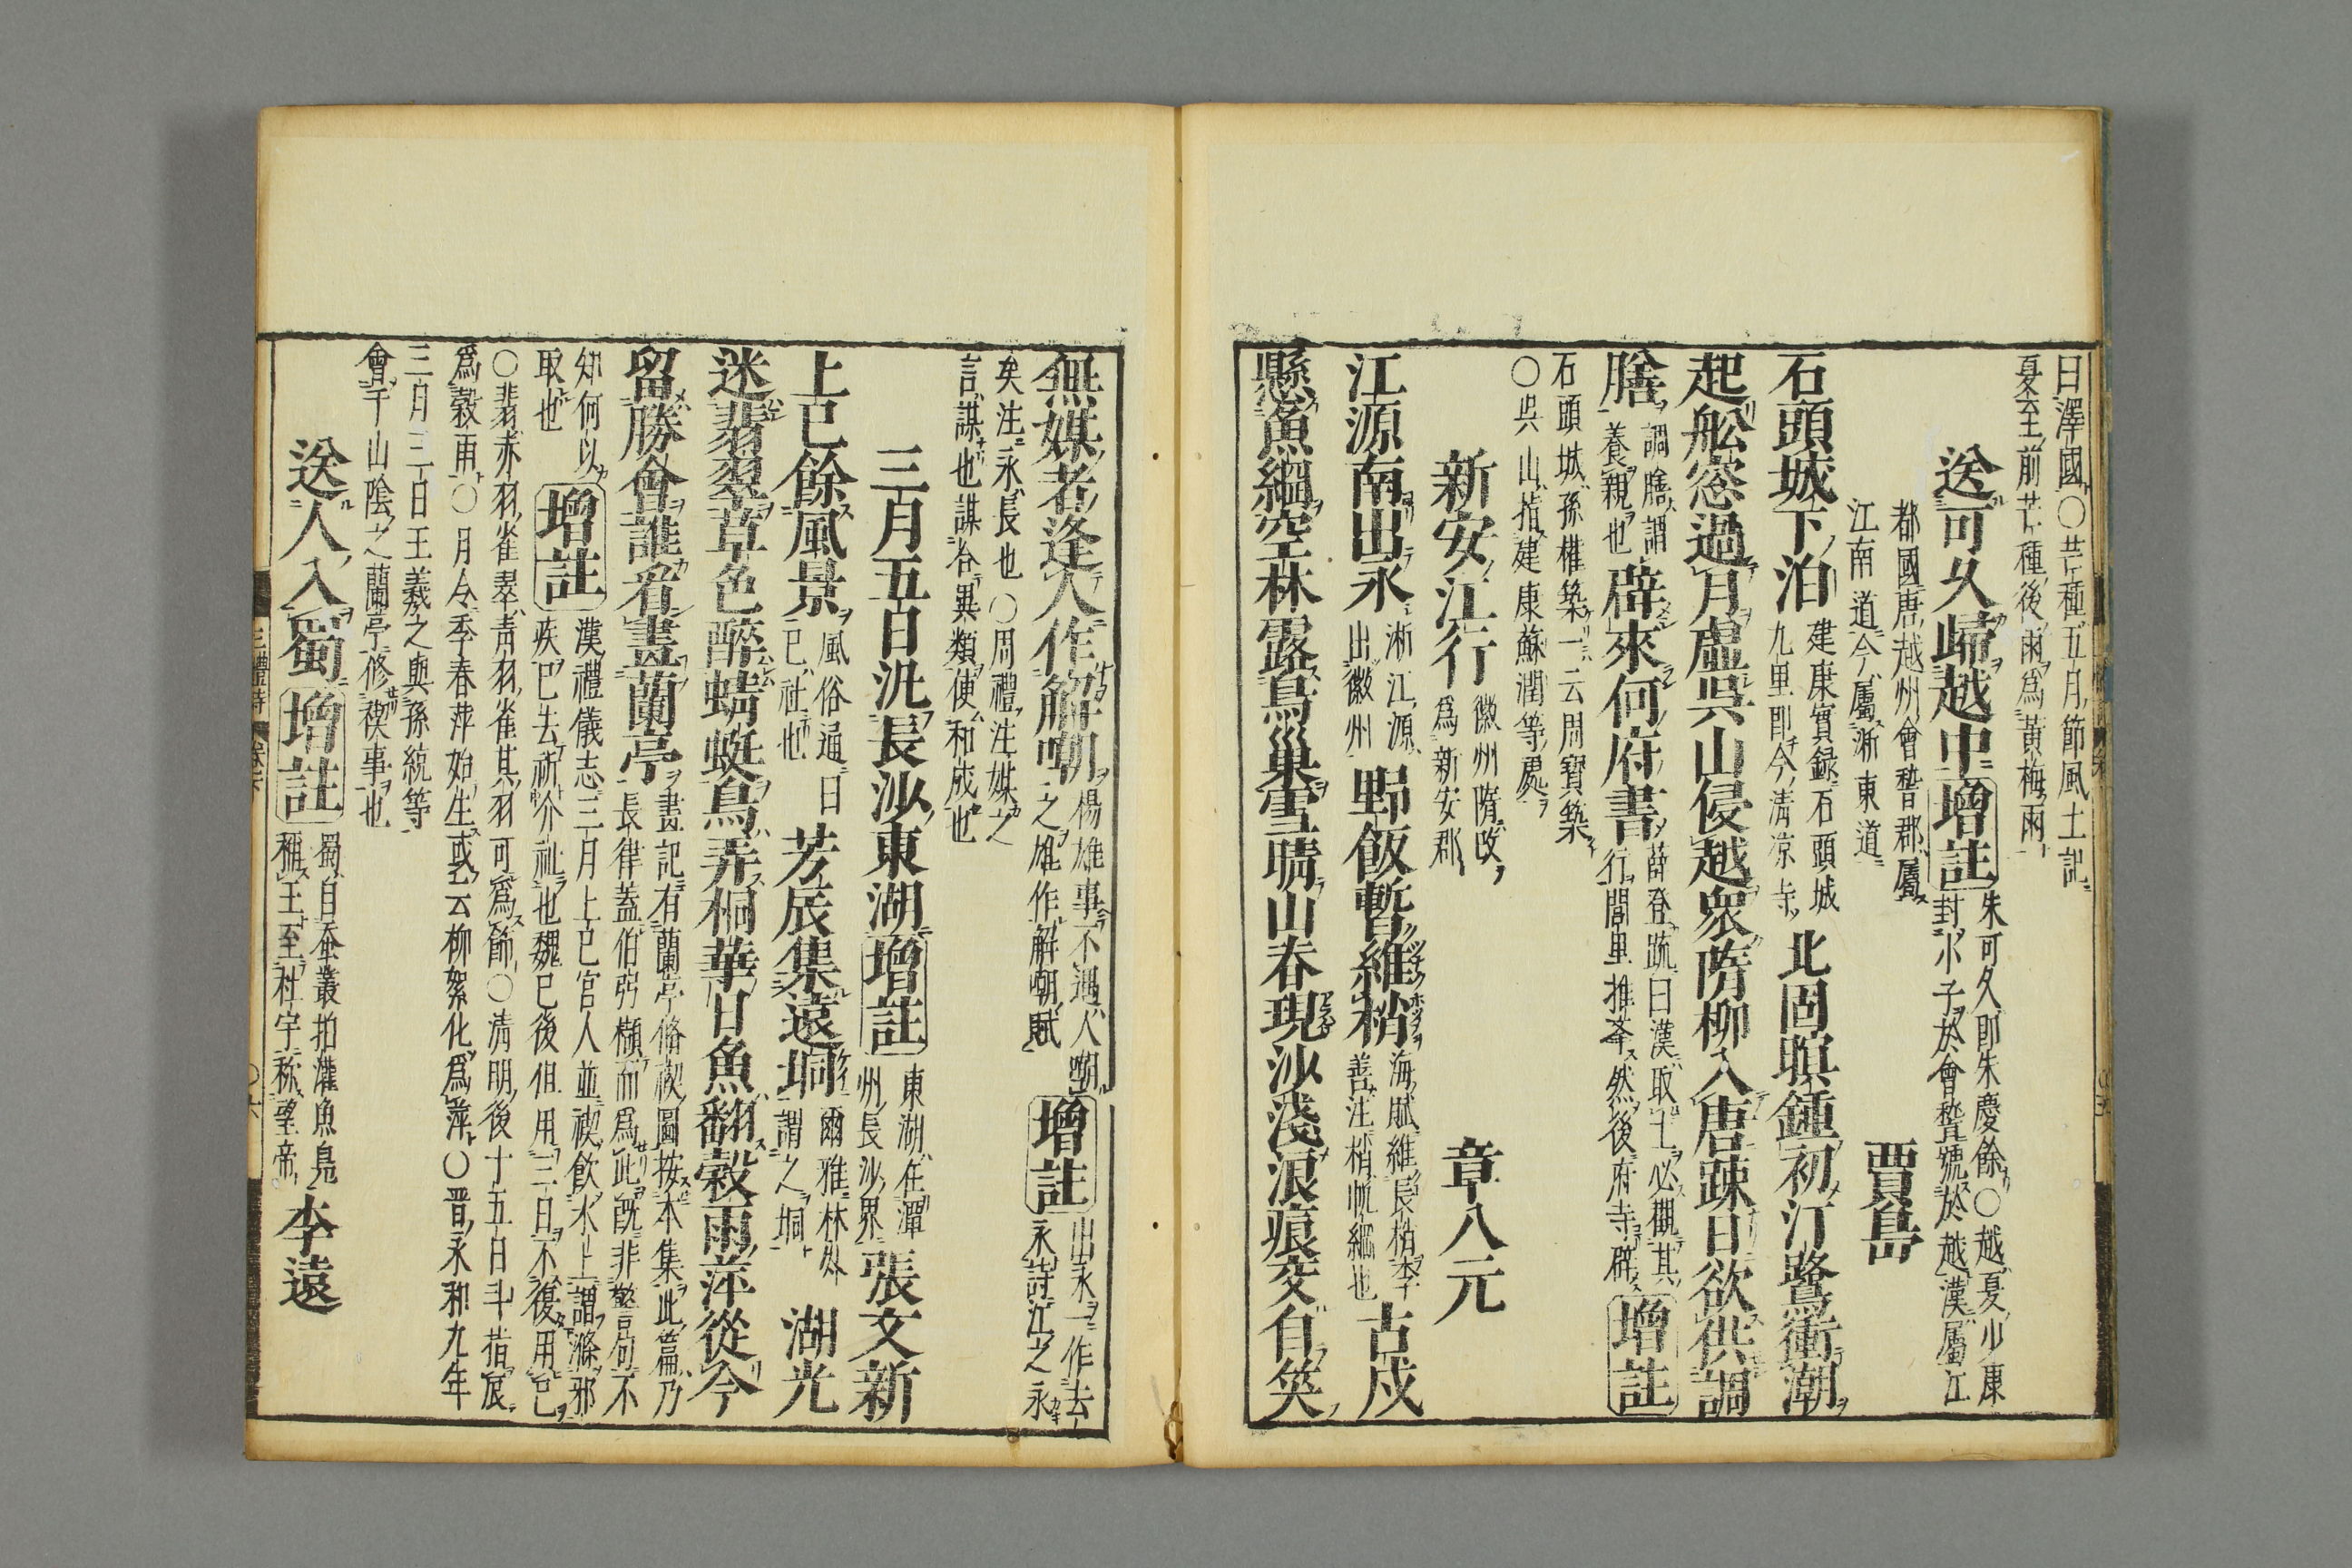 日澤國○芒種五月節風土記
夏至前芒種後雨爲黃梅雨
送可久歸越中 增註 朱可久即朱慶餘○越夏少康
封小子於會稽號於越漢屬江
都國唐越州會稽郡屬
江南道今屬浙東道
賈島
石頭城下泊 建康實録石頭城
九里即今清凉寺 北固暝鍾初汀鷺衝潮
起舩窓過月虛吳山侵越衆隋柳入唐疎日欲供調
膳 調膳謂
養親也 辟來何府書 薛登疏曰漢取士必觀其
行閭里推孝然後府寺辟 增註
石頭城孫權築一云周寶築
○吳山指建康蘇潤等處
新安江行 徽州隋改
爲新安郡 章八元
江源南出永 淅江源
出徽州 野飯暫維梢 海賦維長梢李
善注梢帆綱也 古戍
懸魚網空林露鳥巢雪晴山春現沙淺浪痕交自笑
無媒者逢人作解嘲 楊雄事不遇人嘲
之雄作解嘲賦 增註 出永一作去
永詩江之永
矣注永長也○周禮注媒之
言謀也謀合異類使和成也
三月五日汎長沙東湖 增註 東湖在潭
州長沙界 張文新
上巳餘風景 風俗通曰
巳社也 芳辰集遠坰 爾雅林外
謂之坰 湖光
迷翡翠草色醉蜻蜓鳥弄桐華日魚翻穀雨萍從今
留勝會誰看畫蘭亭 畫記有蘭亭脩禊圖按本集此篇乃
長律蓋伯弜櫇而爲此既非警句不
知何以
取也 增註 漢禮儀志三月上巳宮人並禊飲水上謂滌邪
疾巳去祈介祉也魏巳後但用三日不復用巳
○翡赤羽雀翠青羽雀其羽可爲飾○清明後十五日斗指辰
爲穀雨○月令季春萍始生或云柳絮化爲萍○晉永和九年
三月三日王羲之與孫統等
會于山陰之蘭亭修禊事也
送人入蜀 增註 蜀自蚕叢拍灌魚鳧
稱王至杜宇称望帝 李遠
三體詩 卷六